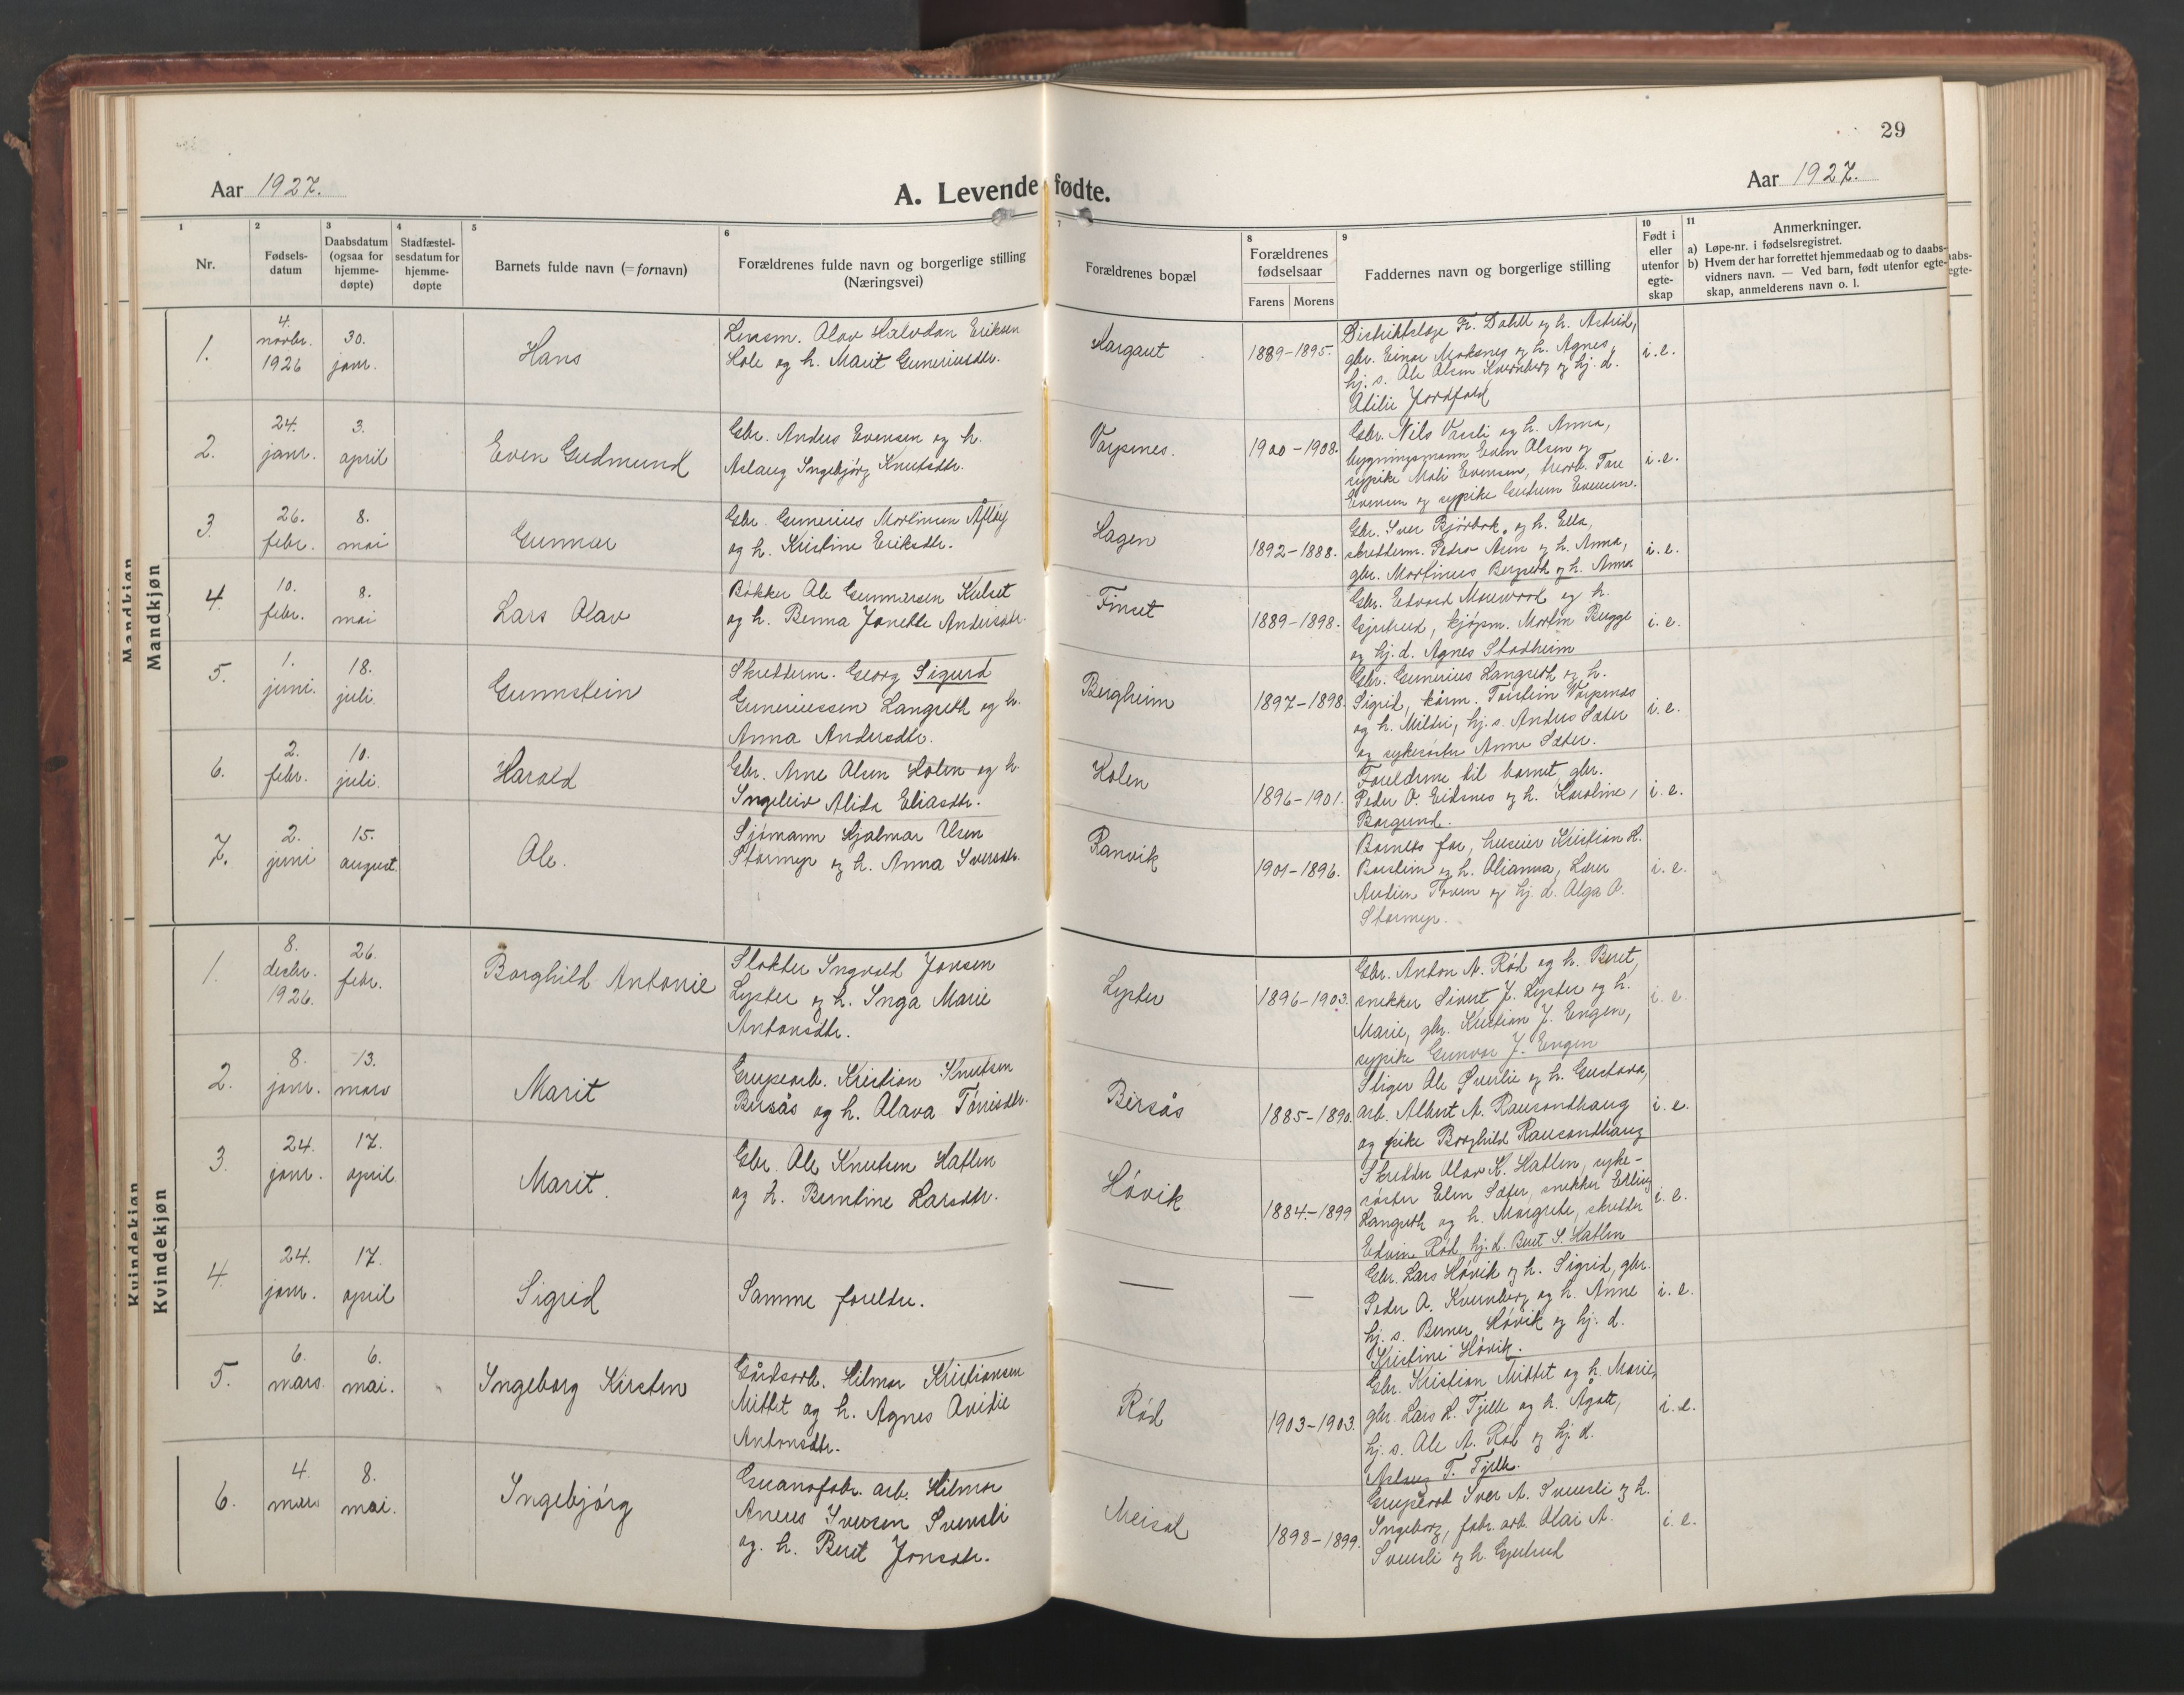 29
Aar 1927.
A. Levende fødte.
Aar 1927.
1 Nr.
2 Fødsels-
datum
3 Daabsdatum
(ogsaa for
hjemme-
døpte)
4 Stadfæstel-
sesdatum for
hjemme-
døpte
5 Barnets fulde navn (=fornavn)
6 Forældrenes fulde navn og borgerlige stilling
(Næringsvei)
7 Forældrenes bopæl
8 Forældrenes
fødselsaar
Farens Morens
9 Faddernes navn og borgerlige stilling
10 Født i
eller
utenfor
egte-
skap
11 Anmerkninger.
a) Løpe-nr. i fødselsregistret.
b) Hvem der har forrettet hjemmedaab og to daabs-
vidners navn. — Ved barn, født utenfor egte-
skap, anmelderens navn o. l.
Mandkjøn
1.
4.
novbr.
1926
30.
janr.
Hans
Lensm. Olav Halvdan Eriksen
Hole og h. Marit Guneriusdtr.
Hargaut
1889-1895.
Distriktslæge Fr. Dahll og h. Astrid,
gbr. Einar Moksnes og h. Agnes,
hj. s. Ole Olsen Kvernberg og hj. d.
Otilie
i. e.
2.
24.
janr.
3.
april
Even Gudmund
Gbr. Anders Evensen og h.
Aslaug Ingebjörg Knutsdtr.
Varpenes.
1900-1908.
Gbr. Nils Vasli og h. Anna,
bygningsmann Even Olsen og
sypike Mali Evensen, Tore
Evensen og sypike Gudrun Evensen.
i. e.
3.
26.
febr.
8.
mai
Gunnar
Gbr. Gunerius Martinsen Aflöy
og h. Kristine Eriksdtr.
Hagen
1892-1888.
Gbr. Iver Bjørbak og h. Ella,
skredderm. Peder og h. Anna,
gbr. Martinus Bergseth og h. Anna
i. e.
4.
10.
febr.
8.
mai
Lars Olav
Bökker Ole Gunnarsen Kulset
og h. Benna Janette Andersdtr.
Finset
1889-1898.
Gbr. Edvard og h.
Gjertrud, kjøpm. Martin Bugge
og hj. d. Agnes Stadheim
i. e.
5.
1.
juni.
18.
juli
Gunnstein
Skredderm. Georg Sigurd
Guneriussen Langseth og h.
Anna Andersdtr.
Bergheim
1897-1898.
Gbr. Gunerius Langseth og h.
Sigrid, kårm. Torstein Varpenes
og h. Mildri, hj. s. Anders Sæter
og sykesöster Anne Sæter.
i. e.
6.
2.
febr.
10.
juli.
Harald
Gbr. Arne Olsen Holen og h.
Ingeleiv Alida Eliasdtr.
Holen
1896-1901.
Foreldrene til barnet, gbr.
Peder O. Eidsnes og h. Karoline,
Borgund.
i. e.
7.
2.
juni
15.
august
Ole.
Sjömann Hjalmar Olsen
Stormyr og h. Anna Iversdtr.
Ranvik
1901-1896.
Barnets far, huseier Kristian H.
og h. Olianna, Lærer
Toven og hj. d. Olga O.
Stormyr.
i. e.
Kvindekjøn
1.
8.
desbr.
1926.
26.
febr.
Borghild Antonie
Slakter Ingvald Jonsen
Lyster og h. Inga Marie
Antonsdtr.
Lyster
1896-1903.
Gbr. Anton A. Röd og h. Beret,
snekker Sivert J. Lyster og h.
Marie, gbr. Kristian J. Engen,
sypike Gunvor J. Engen
i. e.
2.
8.
janr.
13.
mars
Marit
Grupearb. Kristian Knutsen
Bersås og h. Olava Torrisdtr.
Bersås
1885-1890.
Stiger Ole Sverlie og h. Gustava,
arb. Albert A. Rausandhaug
og pike Borghild Rausandhaug
i. e.
3.
24.
janr.
17.
april
Marit.
Gbr. Ole Knutsen Hatlen
og h. Berntine Larsdtr.
Hövik
1884-1899
Skredder Olav K. Hatlen, syke-
söster Elen Sæter, snekker Erling
Langseth og h. Margrete, skredder
Edvin Röd, hj. d. Beret S. Hatlen
i. e.
4.
24.
janr.
17.
april
Sigrid
Samme foreldre.
—
—
Gbr. Lars Hövik og h. Sigrid, gbr.
Peder O. Kvernberg og h. Anne
hj. s. Berner Hövik og hj. d.
Kristine Hövik.
i. e.
5.
6.
mars.
6.
mai.
Ingeborg Kirsten
Gårdsarb. Hilmar Kristiansen
Mittet og h. Agnes Ovidie
Antonsdtr.
Röd
1903-1903.
Gbr. Kristian Mittet og h. Marie,
gbr. Lars H. Tjelle og h. Ågott,
hj. s. Ole A. Röd og hj. d.
Aslaug T. Tjelle.
i. e.
6.
4.
mars
8.
mai.
Ingebjörg
Guanofabr. arb. Hilmar
Aneus Iversen Sversli
og. h. Beret Jonsdtr.
Meisal
1898-1899.
Grupearb. Iver A. Sversli og h.
Ingeborg, fabr. arb. Olai A.
Sversli og h. Gjertrud
i. e.